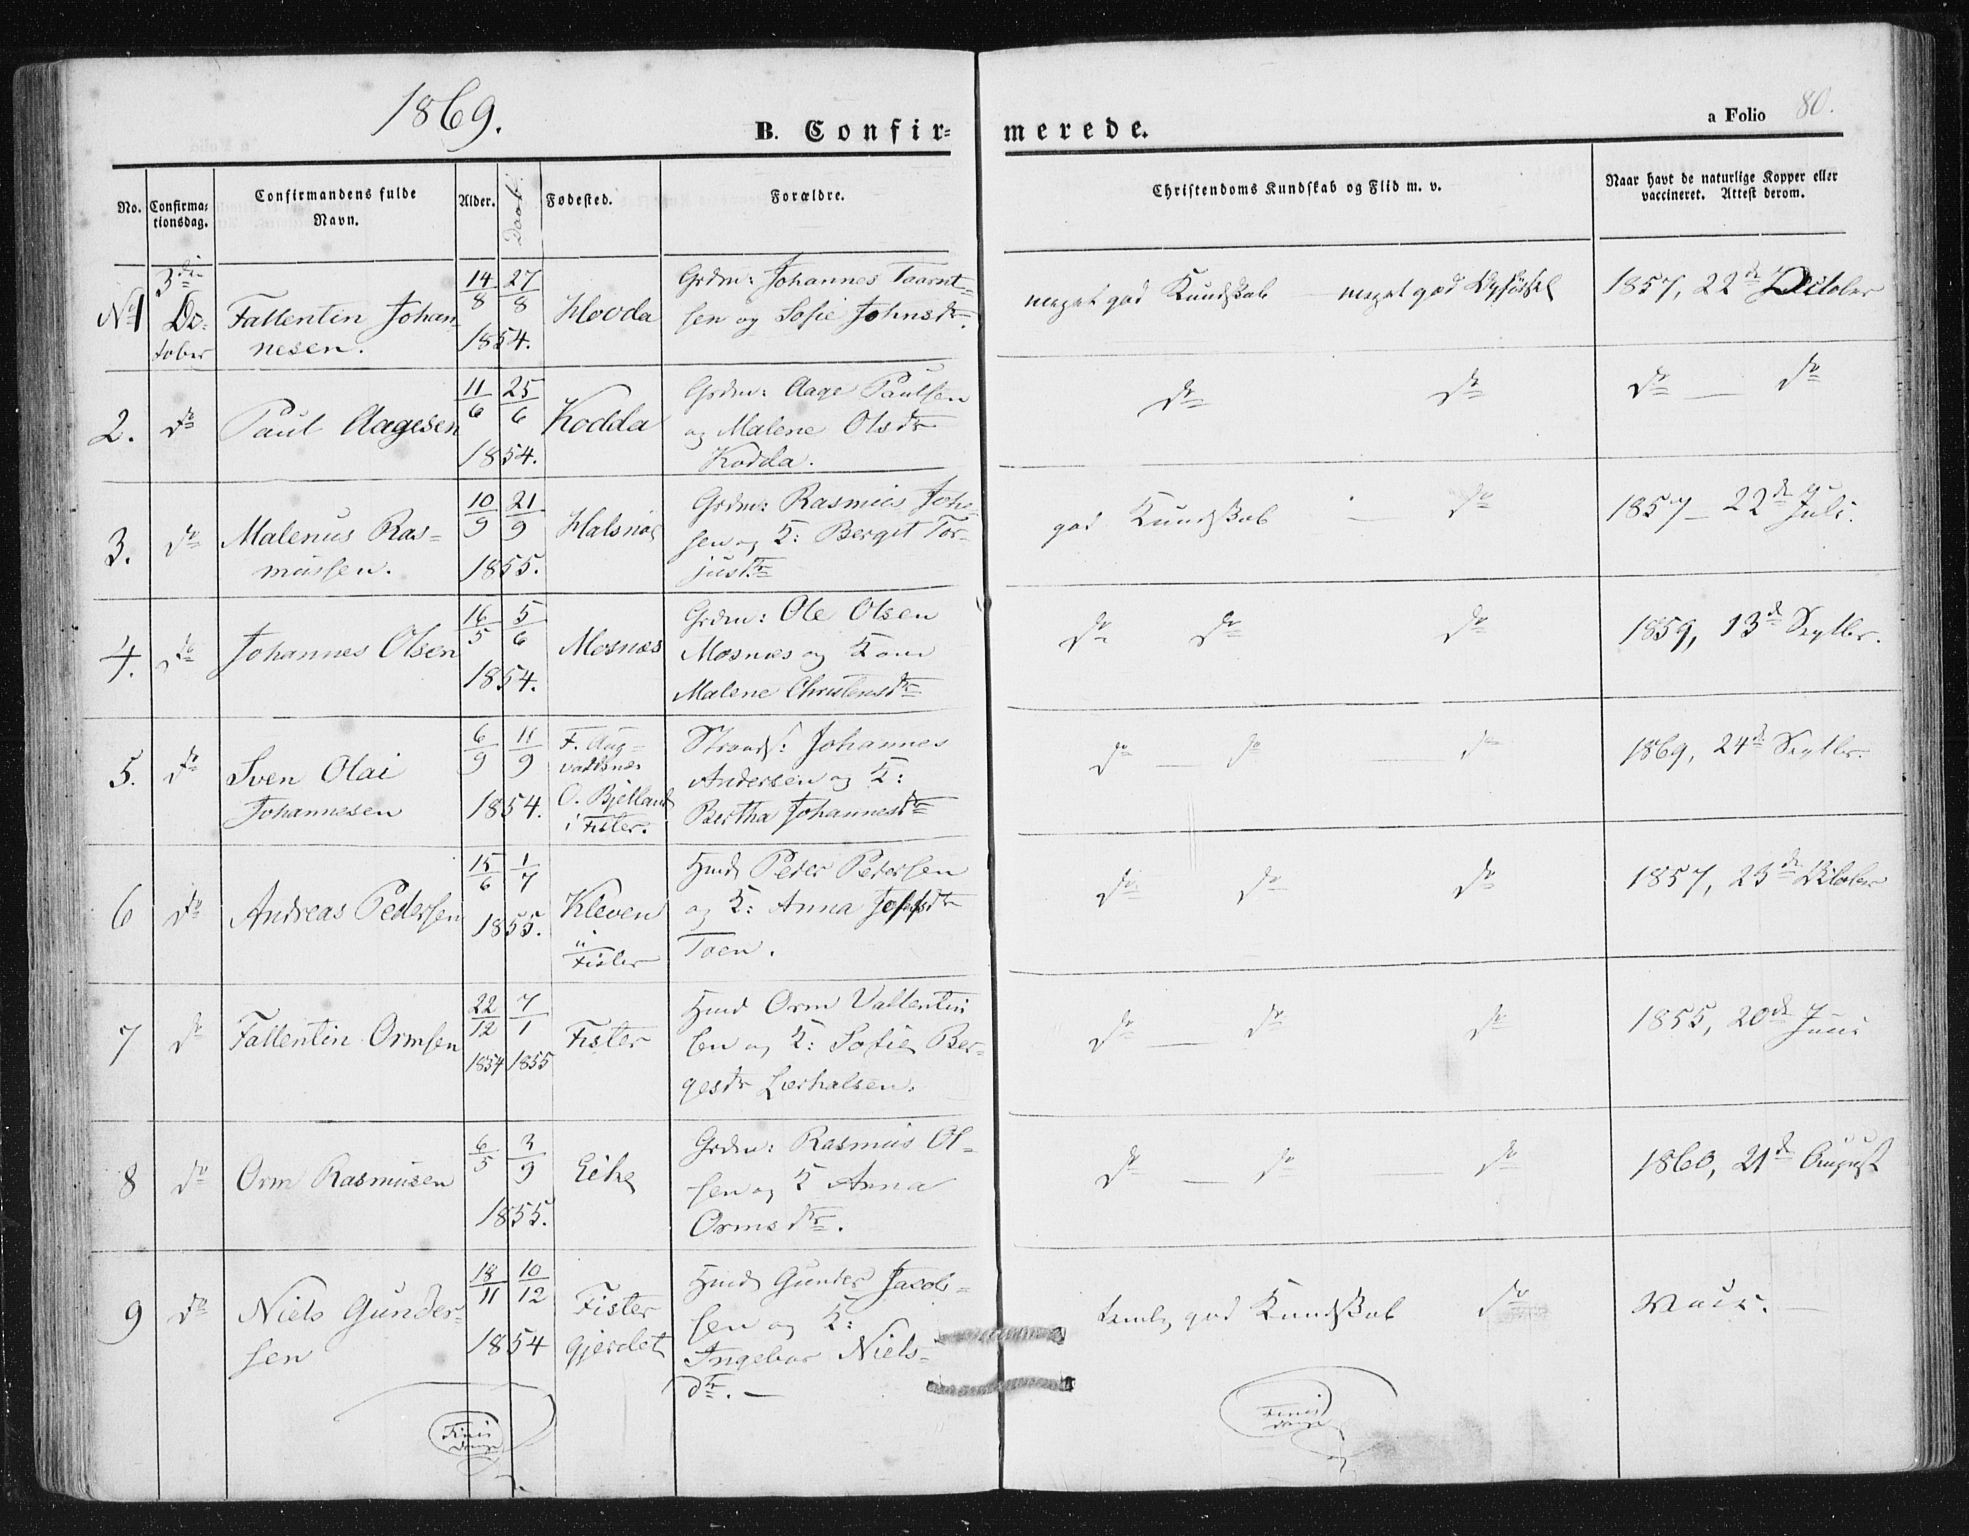 1869.
B. Confir-
merede.
a Folio 80.
No.
Confirma-
tionsdag.
Confirmandens fulde
Navn.
Alder.
Daab.
Fødested.
Forældre.
Christendoms Kundskab og Flid m. v.
Naar havt de naturlige Kopper eller
vaccineret. Attest derom.
No 1
3die
Oc-
tober
Fallentin Johan-
nesen.
14/8 27/8
1854.
Hovda
Grdm: Johannes Taarnt-
sen og Sofie Johnsdr.
meget god Kundskab — meget god Opførsel
1857, 22de October
2.
do
Paul Aagesen
11/6 25/6
1854.
Kodda
Grdm: Aage Paulsen
og Malene Olsdr
Kodda.
do do
do — do
3.
do
Malenus Ras-
mussen.
10/9 21/9
1855.
Halsnø
Grdm: Rasmus Joh-
sen og K: Berget Tor-
jusdr
god Kundskab — do
1857 — 22de Juli.
4.
do
Johannes Olsen
16/5 5/6
1854.
Mosnæs
Grdm: Ole Olsen
Mosnæs og Kone
Malene Christensdr
do do do
1859, 13de Septbr.
5.
do
Sven Olai
Johannesen
6/9 11/9
1854.
F. Aug-
valdsnæs
O. Bjelland
i Fister.
Strands: Johannes
Andersen og K:
Bertha Johannesdr
do — do — do
1869, 24de Septbr.
6
do
Andreas Pedersen
15/6 1/7
1855.
Kleven
i
Fister
Huusm Peder Pedersen
og K: Anna
Toen.
do do do
1857, 23de October
7
do
Fallentin Ormsen
22/12 7/1
1854 1855
Fister
Huusm Orm Vallentin
sen og K: Sofie Ber-
gesdr Lerhalsen.
do — do do
1855, 20de Juni
8
do
Orm Rasmusen
6/5 3/9
1855.
Eike
Grdm: Rasmus Ol-
sen og K Anna
Ormsdr.
do — do — do
1860, 21de August
9
do
Niels Gunder-
sen
18/11 10/12
1854
Fister
gjerdet
Huusm Gunder Jacob-
sen og K:
Ingebor Niels-
dr. —
temlig god Kundskab do
Finis
Finis